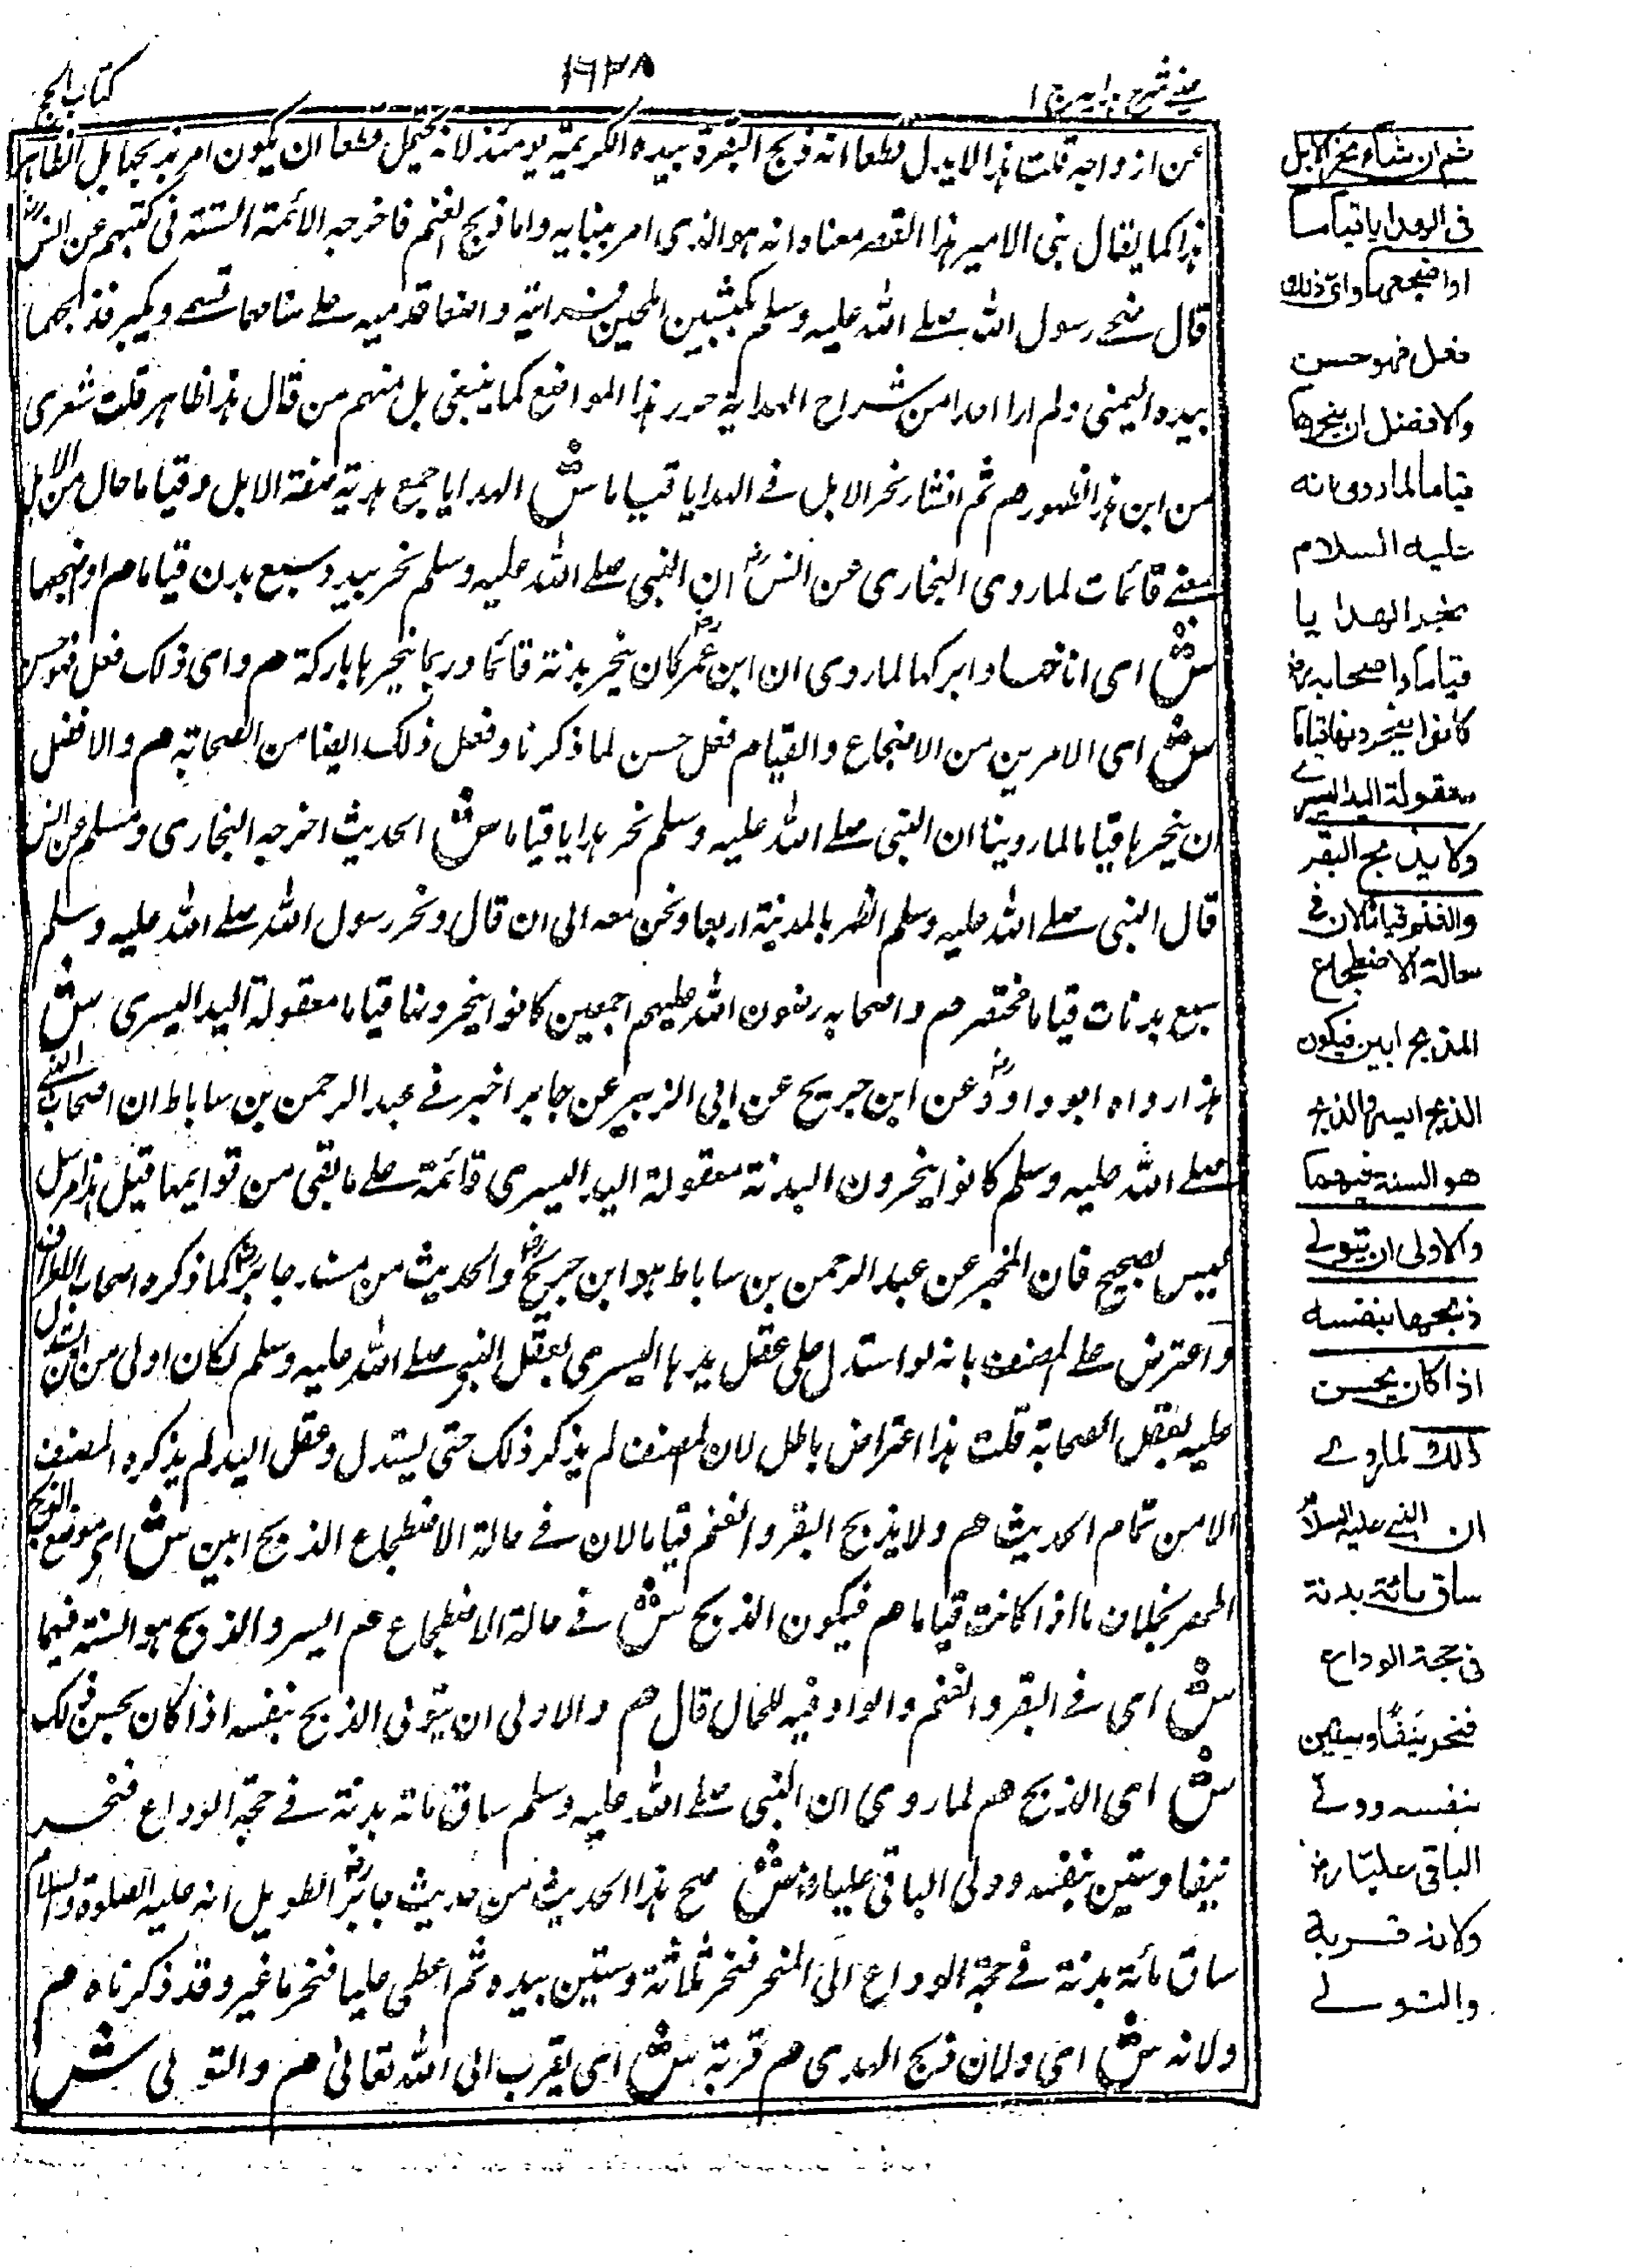 كتاب الحج
١٦٣٨
عينى شرح هدايه ج ١
عن ازواجه قلت هذا لا يدل قطعا انه ذبح البقرة بيده الكريمة يومئذ لانه يحتمل قطعا ان يكون امر بذبحها بل الظاهر
هذا كما يقال بنى الامير هذا القصر معناه انه هو الذى امر ببنايه واما ذبح الغنم فاخرجه الائمة الستة فى كتبهم عن انس رض
قال ضحى رسول الله صلے الله عليه وسلم بكبشين املحين فرايته واضعا قدميه علے صفاحهما يسمے ويكبر فذبحهما
بيده اليمنى ولم ار احدا من شراح الهداية حرر هذا المواضع كما ينبغى بل منهم من قال هذا ظاهر قلت شعرى
من اين هذا الظهور هم ثم انشاء نحر الابل فے الهدايا قياما ش الهدايا جمع هدية صفة الابل وقياما حال من الابل
بمعنے قائمات لما روى البخارى عن انس رض ان النبى صلے الله عليه وسلم نحر بيده سبع بدن قياما هم او اضجعها
ش اى اناخها وابركها لما روى ان ابن عمر رض كان ينحر بدنة قائما وربما ينحرها باركة هم واى ذلك فعل فهو حسن
ش اى الامرين من الاضجاع والقيام فعل حسن لما ذكرنا وفعل ذلك ايضا من الصحابة هم والافضل
ان ينحرها قياما لما روينا ان النبى صلے الله عليه وسلم نحر هدايا قياما ش الحديث اخرجه البخارى ومسلم عن انس
قال النبى صلے الله عليه وسلم الظهر بالمدينة اربعا ونحن معه الى ان قال ونحر رسول الله صلے الله عليه وسلم
سبع بدنات قياما مختصر هم واصحابه رضون الله عليهم اجمعين كانوا ينحرونها قياما معقولة اليد اليسرى ش
هذا رواه ابو داود عن ابن جريج عن ابى الزبير عن جابر اخبر نے عبد الرحمن بن ساباط ان اصحاب النبے
صلے الله عليه وسلم كانوا ينحرون البدنة معقولة اليد اليسرى قائمة علے ما بقى من قوايمها قيل هذا مرسل
ليس بصحيح فان المخبر عن عبد الرحمن بن ساباط هو ابن جريج والحديث من مسند جابر رض كما ذكره اصحاب الاطراف
واعترض علے المصنف بانه لو استدل على عقل يدها اليسرى بعقل النبى صلے الله عليه وسلم لكان اولى من ان استدل
عليه بفعل الصحابة قلت هذا اعتراض باطل لان المصنف لم يذكر ذلك حتى يستدل وعقل اليد لم يذكره المصنف
الا من تمام الحديث هم ولا يذبح البقر والغنم قياما لان فے حالة الاضطجاع الذبح ابين ش اى موضع الذبح
اظهر بخلاف ما اذا كانت قياما هم فيكون الذبح ش فے حالة الاضطجاع هم ايسر والذبح هو السنة فيهما
ش اى فے البقر والغنم والواو فيه للحال قال هم والاولى ان يتولى الذبح بنفسه اذا كان يحسن ذلك
ش اى الذبح هم لما روى ان النبى صلے الله عليه وسلم ساق مائة بدنة فے حجة الوداع فنحر
نيفا وستين بنفسه وولى الباقى عليا رض ش صح هذا الحديث من حديث جابر رض الطويل انه عليه الصلوة والسلام
ساق مائة بدنة فے حجة الوداع الى المنحر فنحر ثلثة وستين بيده ثم اعطى عليا فنحر ما غبر وقد ذكرناه هم
ولانه ش اى ولان ذبح الهدى هم قربة ش اى يقرب الى الله تعالى هم والتولى ش
ثم ان شاء نحر الابل
فى الهدايا قياما
او اضجعها واى ذلك
فعل فهو حسن
والافضل ان ينحرها
قياما لما روى انه
عليه السلام
نحر الهدايا
قياما واصحابه رض
كانوا ينحرونها قياما
معقولة اليد اليسرے
ولا يذبح البقر
والغنم قياما لان فے
حالة الاضطجاع
المذبح ابين فيكون
الذبح ايسر والذبح
هو السنة فيهما
والاولى ان يتولے
ذبحها بنفسه
اذا كان يحسن
ذلك لما روے
ان النبے عليه السلام
ساق مائة بدنة
فى حجة الوداع
فنحر نيفا وستين
بنفسه وولے
الباقى عليا رض
ولانه قربة
والتولے